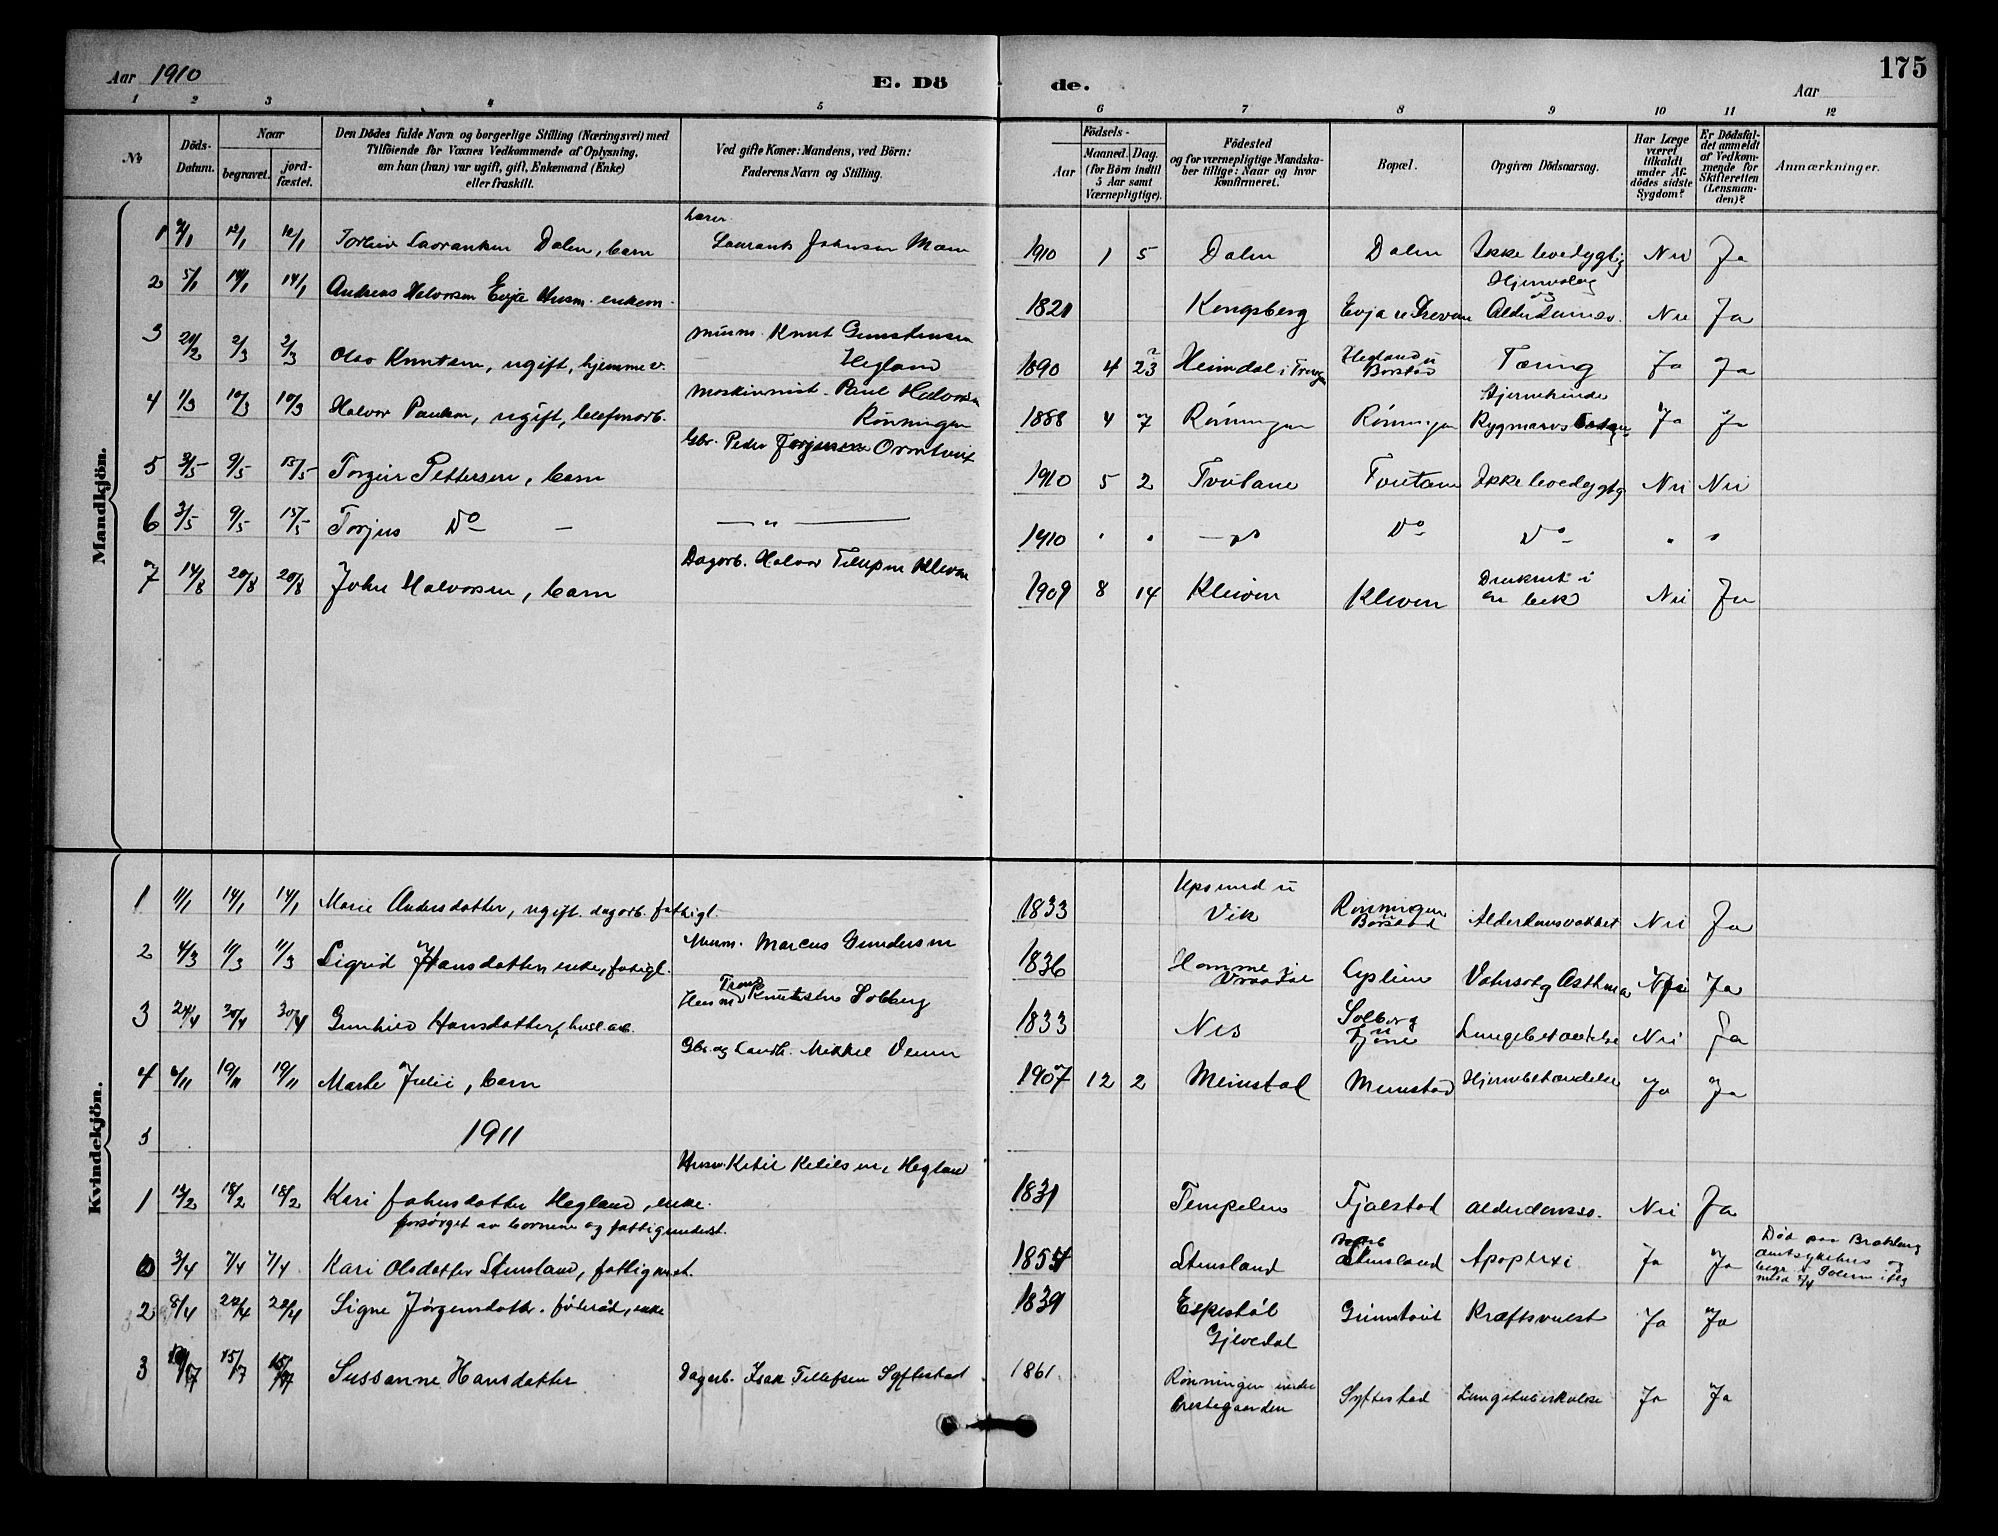 Aar 1910
E. Dö
de.
Aar
175
1 2 3 4 5 6 7 8 9 10 11 12
No
Döds-Datum.
Naar
begravet.
jord-fæstet.
Den Dödes fulde Navn og borgerlige Stilling (Næringsvei) med
Tilföiende for Voxnes Vedkommende af Oplysning,
om han (hun) var ugift, gift, Enkemand (Enke)
eller fraskilt.
Ved gifte Koner: Mandens, ved Börn:
Faderens Navn og Stilling.
Födsels-
Aar
Maaned. Dag.
(for Börn indtil
5 Aar samt
Værnepligtige).
Födested
og for værnepligtige Mandska-
ber tillige: Naar og hvor
konfirmeret.
Bopæl.
Opgiven Dödsaarsag.
Har Læge
været
tilkaldt
under Af-
dödes sidste
Sygdom?
Er Dödsfal-
det anmeldt
af Vedkom-
mende for
Skifteretten
(Lensman-
den)?
Anmærkninger.
Mandkjön.
1 7/1 12/1 12/1 Dalen, barn Laurants Johnsen Moen 1910 1 5 Dalen Dalen Ikke levedygtig Nei Ja
2 5/1 14/1 14/1 Andreas Halvorsen Evje Husm. enkem. 1821 Kongsberg Alderdomssv. Nei Ja
3 20/2 2/3 2/3 Olav Knutsen, ugift, hjemmev. Knut Gunstensen
Hegland 1890 4 23 Heimdal i Hegland u
Borstad Tæring Ja Ja
4 1/3 10/3 10/3 Halvor Paulsen, ugift, telefonarb. Maskinmist. Paul Halvorsen
Rönningen 1888 4 7 Rönningen Rönningen Hjernehinde
Rygmarvs Ja Ja
5 3/5 9/5 15/5 Torgeir Pettersen, barn Gbr. Peder Torjussen 1910 5 2 Tveitane Tveitane Ikke levedygtig Nei Nei
6 3/5 9/5 15/5 Torjus Do — — " — 1910 " " Do Do " "
7 14/8 20/8 20/8 John Halvorsen, barn Dagarb. Halvor Kleven 1909 8 14 Kleiven Kleven Druknet i
en bek Nei Ja
Kvindekjön.
1 11/1 14/1 14/1 Marie Andersdatter, ugift. dagarb. fattigl. 1833
Vik Rönningen
Borstad Alderdomssvakhet Nei Ja
2 4/3 11/3 11/3 Sigrid Hansdatter, enke, fattigl. Husm. Marcus Gundersen 1836 Homme i
Vraadal Vatersot og Asthma Nei Ja
3 24/4 30/4 30/4 Gunhild Hansdatter, husl. arb. Husm. Knutsen Solberg 1833 Nes Solberg
u Lungebetændelse Nei Ja
4 6/11 19/11 19/11 Marte Julie, barn Gbr. og Landh. Mikkel Veum 1907 12 2 Meinstad Meinstad Hjernebetændelse Ja Ja
5 1911
1 12/2 18/2 18/2 Kari Johnsdatter Hegland, enke.
forsörget av börnene og fattigunderst. Husm. Ketil Ketilsen, Hegland 1831 Tempelen Fjalestad Alderdomssv. Nei Ja
3/4 7/4 7/4 Kari Olsdatter Stensland, fattigunderst. 1854 Stensland Stensland Apoplexi Ja Ja Död paa
amtssykehus og
begr.
2 8/4 20/4 20/4 Signe Jörgensdatter. föderåd, enke 1839 Espestöl
Gjövedal Grimstveit Kræftsvulst Ja Ja
3 15/7 15/7 Sussanne Hansdatter Dagarb. Isak Tellefsen Syftestad 1861 Rönningen under
Prestegaarden Syftestad Lungetuberkulose Ja Ja